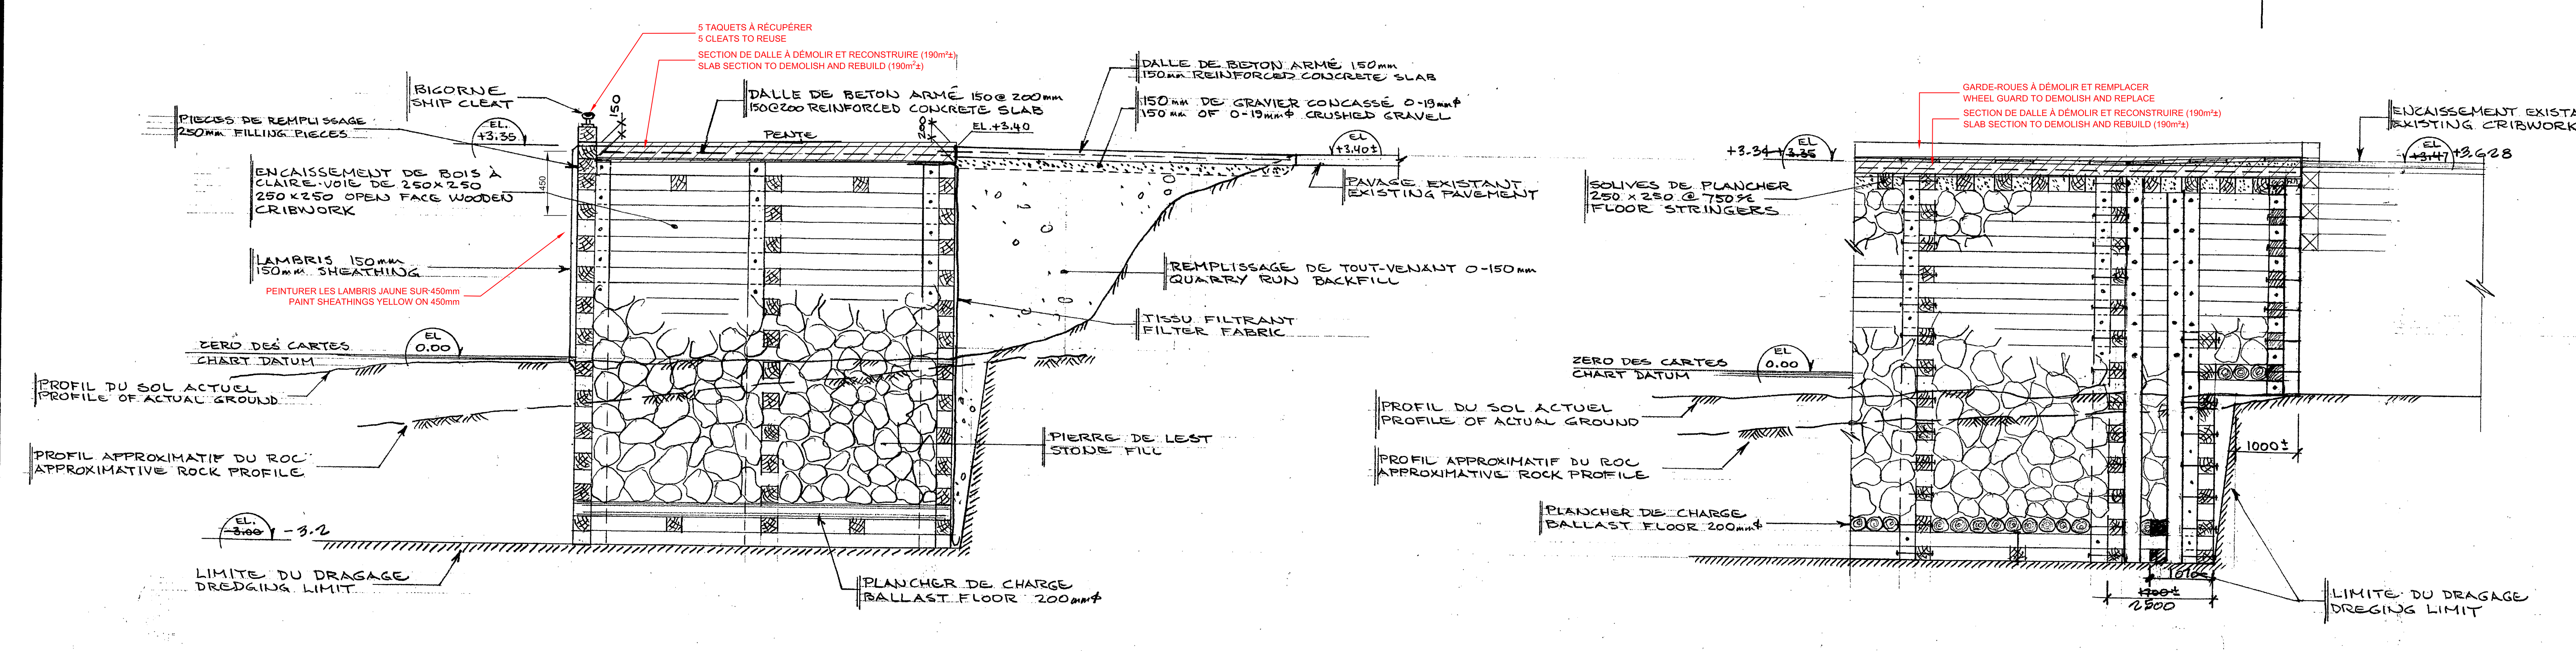 5 TAQUETS À RÉCUPÉRER
5 CLEATS TO REUSE
SECTION DE DALLE À DÉMOLIR ET RECONSTRUIRE (190m²±)
SLAB SECTION TO DEMOLISH AND REBUILD (190m²±)
BIGORNE
SHIP CLEAT
PIECES DE REMPLISSAGE
250mm FILLING PIECES
EL.
+3.35
150
DALLE DE BETON ARMÉ 150@200mm
150@200 REINFORCED CONCRETE SLAB
PENTE
200
EL.+3.40
DALLE DE BETON ARMÉ 150mm
150mm REINFORCED CONCRETE SLAB
150mm DE GRAVIER CONCASSÉ 0-19mmφ
150 mm OF 0-19mmφ CRUSHED GRAVEL
EL
+3.40±
PAVAGE EXISTANT
EXISTING PAVEMENT
ENCAISSEMENT DE BOIS À
CLAIRE-VOIE DE 250X250
250X250 OPEN FACE WOODEN
CRIBWORK
450
LAMBRIS 150mm
150mm SHEATHING
PEINTURER LES LAMBRIS JAUNE SUR 450mm
PAINT SHEATHINGS YELLOW ON 450mm
REMPLISSAGE DE TOUT-VENANT 0-150mm
QUARRY RUN BACKFILL
TISSU FILTRANT
FILTER FABRIC
ZERO DES CARTES
CHART DATUM
EL
0.00
PROFIL DU SOL ACTUEL
PROFILE OF ACTUAL GROUND
PROFIL APPROXIMATIF DU ROC
APPROXIMATIVE ROCK PROFILE
PIERRE DE LEST
STONE FILL
EL.
-3.00 -3.2
LIMITE DU DRAGAGE
DREDGING LIMIT
PLANCHER DE CHARGE
BALLAST FLOOR 200mmφ
GARDE-ROUES À DÉMOLIR ET REMPLACER
WHEEL GUARD TO DEMOLISH AND REPLACE
SECTION DE DALLE À DÉMOLIR ET RECONSTRUIRE (190m²±)
SLAB SECTION TO DEMOLISH AND REBUILD (190m²±)
ENCAISSEMENT EXISTA
EXISTING CRIBWORK
+3.34
EL
+3.35
EL
+3.47 +3.628
SOLIVES DE PLANCHER
250 X 250 @ 750 %
FLOOR STRINGERS
ZERO DES CARTES
CHART DATUM
EL
0.00
PROFIL DU SOL ACTUEL
PROFILE OF ACTUAL GROUND
PROFIL APPROXIMATIF DU ROC
APPROXIMATIVE ROCK PROFILE
1000±
PLANCHER DE CHARGE
BALLAST FLOOR 200mmφ
2500
LIMITE DU DRAGAGE
DREGING LIMIT